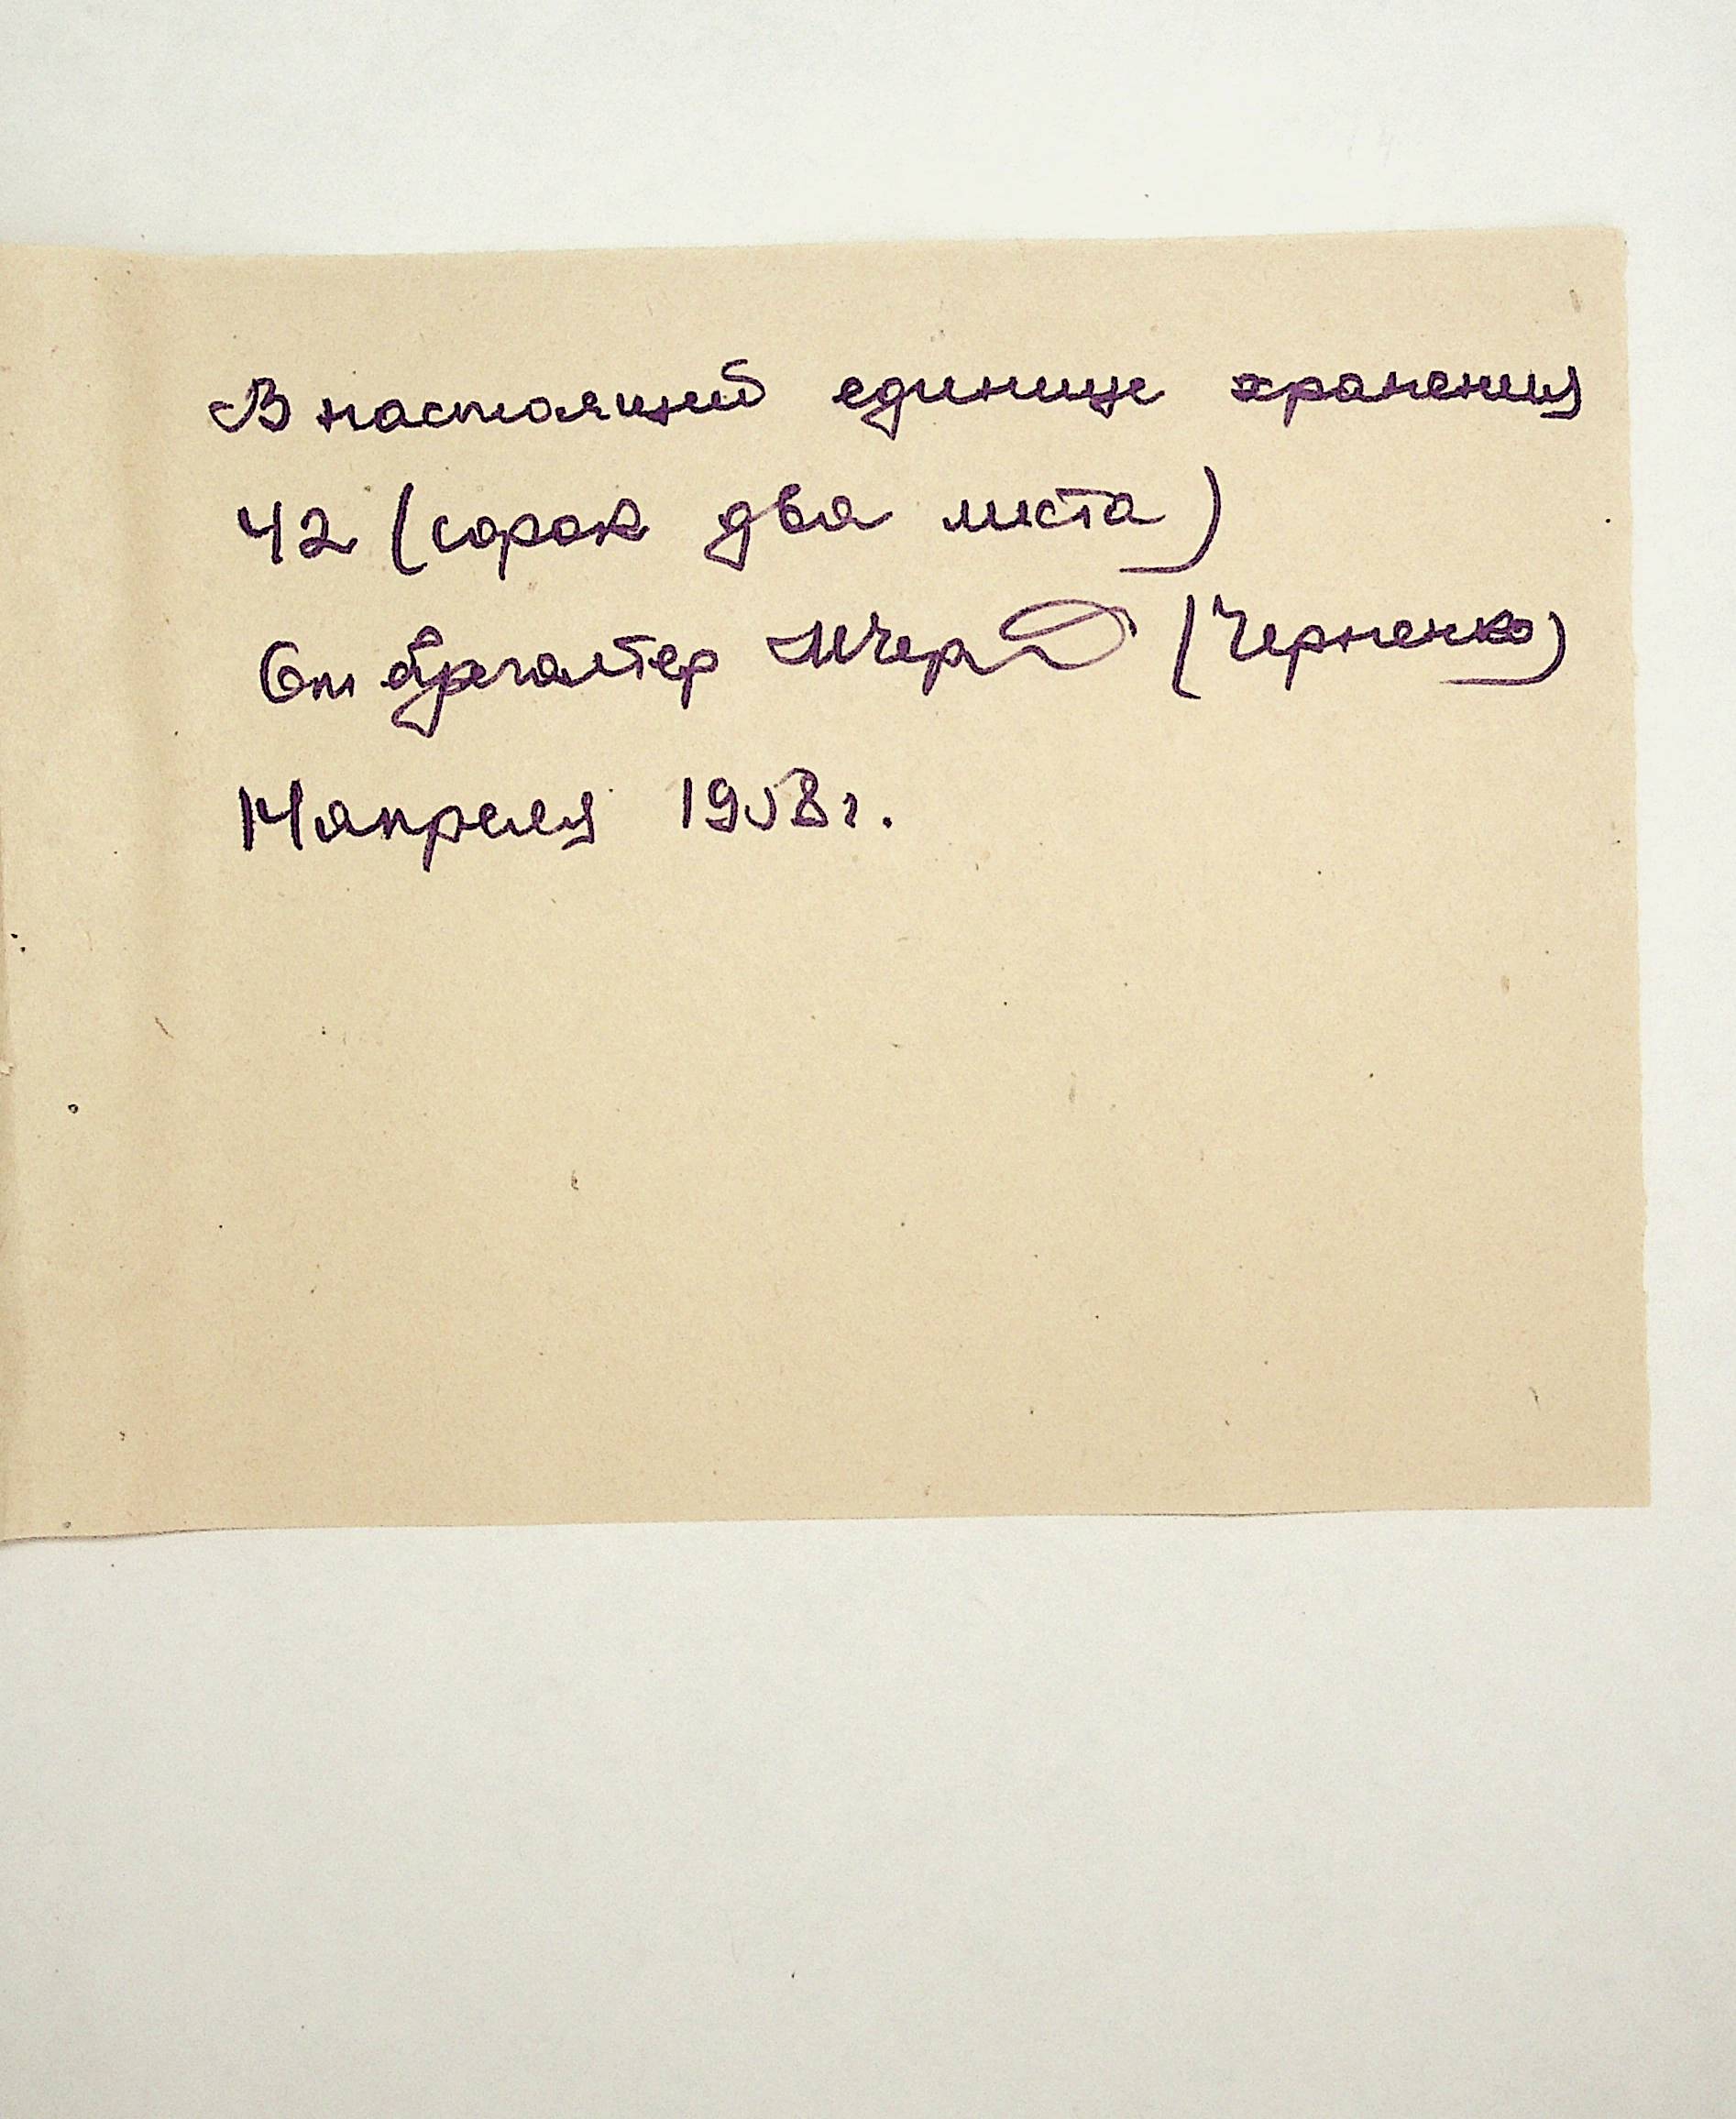 В настоящей единице хранения
42 (сорок два листа)
Ст бухгалтер (Черненко)
14 апреля 1958 г.